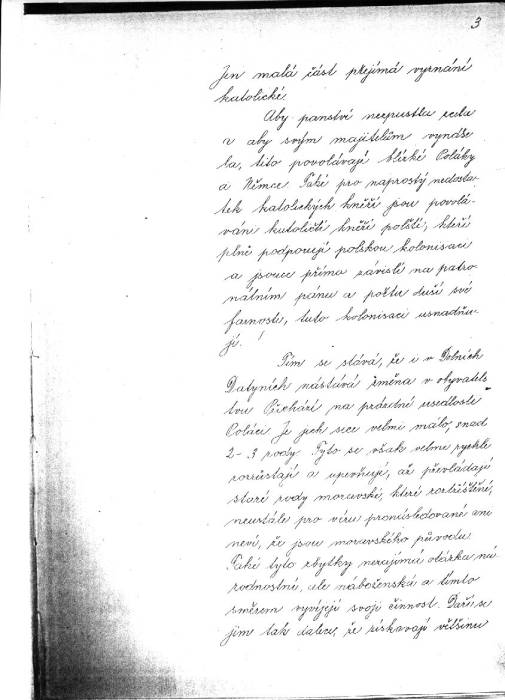 3
Jen malá část přejímá vyznání
katolické.
Aby panství nezpustla zcela
a aby svým majitelům vynáše
la, tito povolávají blízké Poláky
a Němce. Také pro naprostý nedosta-
tek katolických kněží jsou povolá-
váni katoličtí kněží polští, kteří
plně podporují polskou kolonisaci
a jsouce přímo závislí na patro-
nátním pánu a počtu duší své
farnosti, tuto kolonisaci usnadňu-
jí.
Tím se stává, že i v Dolních
Datyních nastává změna v obyvatels-
tvu. Přichází na prázdné usedlosti
Poláci. Je jich sice velmi málo, snad
2-3 rody. Tyto se však velmi rychle
rozrůstají a upevňují, až převládají
staré rody moravské, které roztříštěné,
neustále pro víru pronásledované ani
neví, že jsou moravského původu.
Také tyto zbytky nezajímá otázka ná
rodnostní, ale náboženská a tímto
směrem vyvíjejí svoji činnost. Daří se
jim tak dalece, že získávají většinu